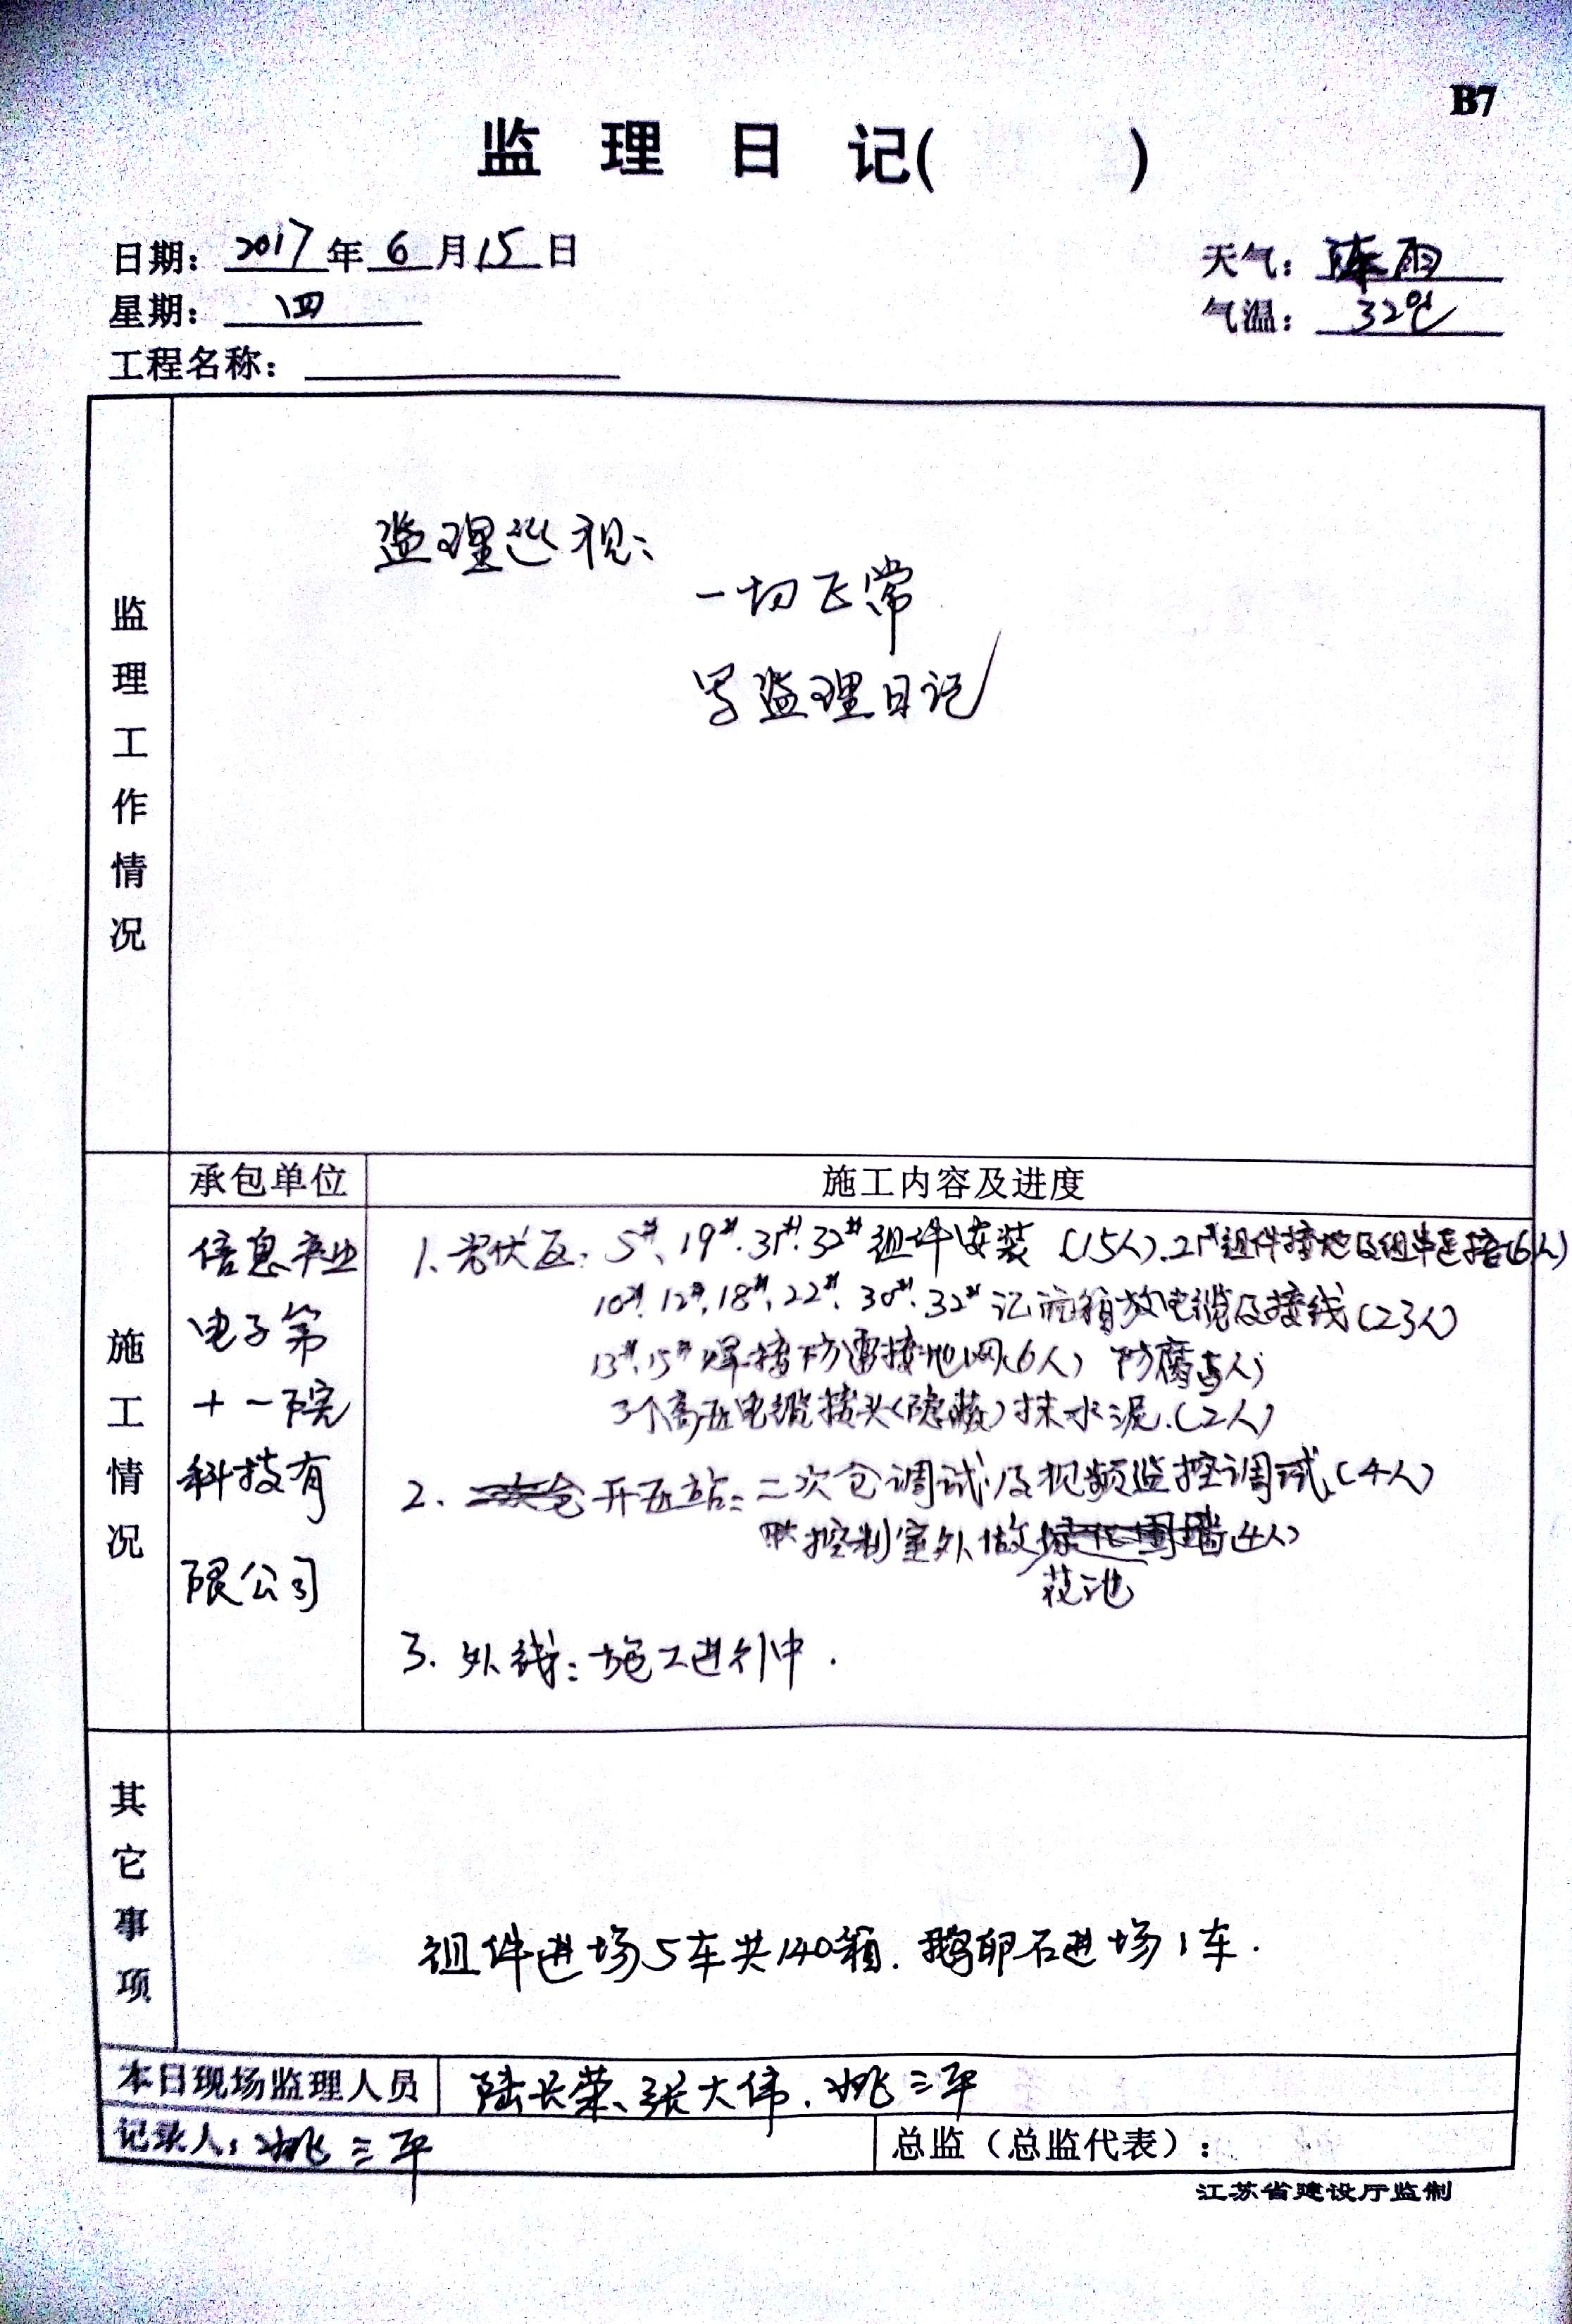 B7
监 理 日 记( )
日期: 2017 年 6 月 15 日
天气: 阵雨
星期: 四
气温: 32℃
工程名称:
监理工作情况
监理巡视:
一切正常
写监理日记
承包单位
施工内容及进度
施工情况
信息产业
电子第
十一院
科技有
限公司
1、光伏区: 5#、19#、31#、32#组件安装(15人).21#组件接地及组串连接(6人)
10#、12#、18#、22#、30#、32#汇流箱放电缆及接线(23人)
13#、15#焊接防雷接地网(6人) 防腐(5人)
3个高压电缆接头(隐蔽)抹水泥.(2人)
2、开压站: 二次仓调试及视频监控调试(4人)
控制室外做花池(4人)
3. 外线: 施工进行中.
其它事项
组件进场5车共140箱. 鹅卵石进场1车.
本日现场监理人员 陆长荣、张大伟、姚三平
记录人: 姚三平
总监(总监代表):
江苏省建设厅监制